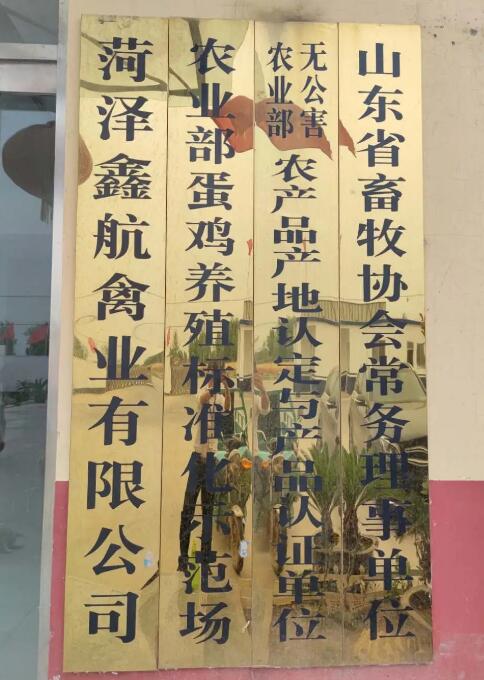 山东省畜牧协会常务理事单位
无公害
农业部
农产品产地认定与产品认证单位
农业部蛋鸡养殖标准化示范场
菏泽鑫航禽业有限公司